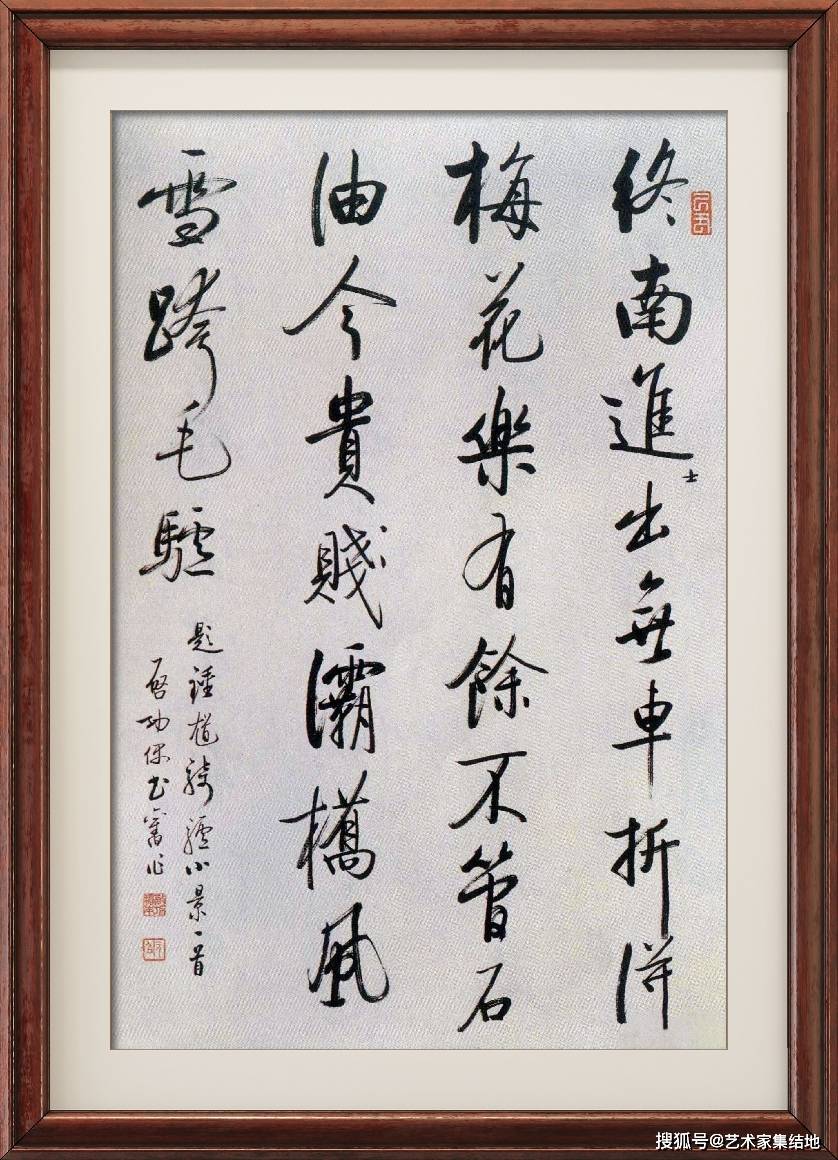 終南進士出無車折得
梅花樂有餘不管石
油今貴賤灞橋風
雪跨毛驢
題鍾馗騎驢小景一首
啓功偶書舊作
搜狐号@艺术家集结地